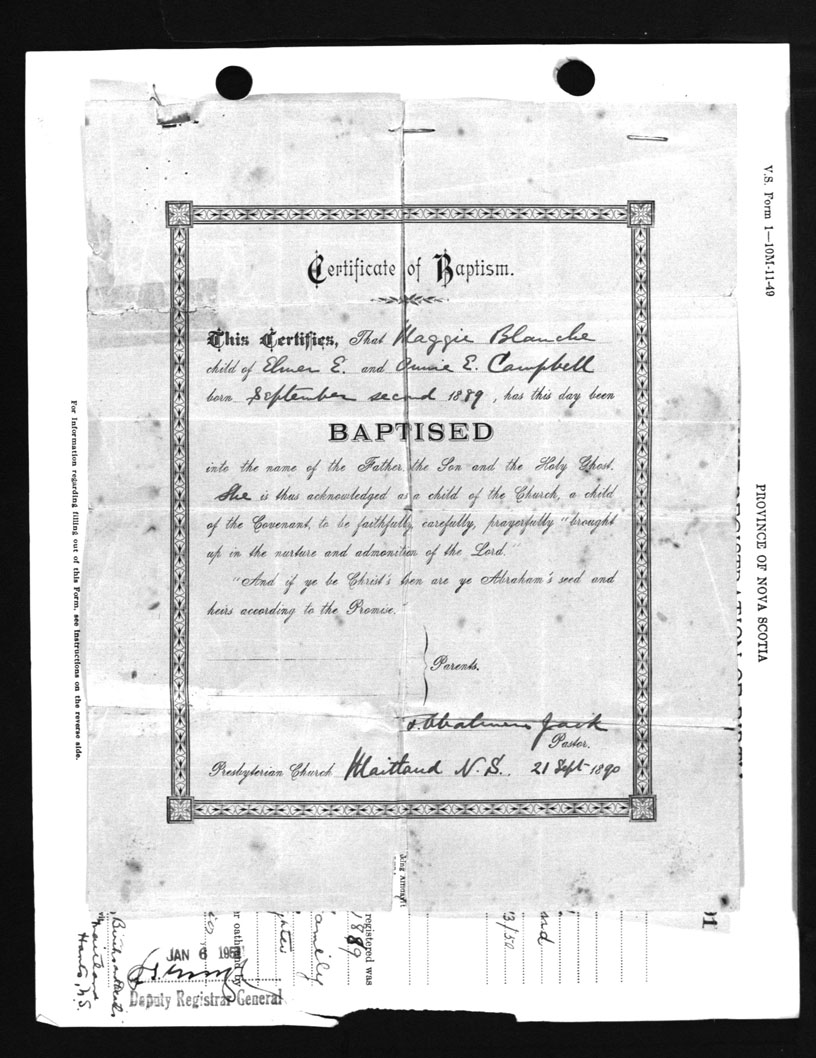 Certificate of Baptism.
This Certifies, That Maggie Blanche
child of Elmer E. and Annie E. Campbell
born September second 1889, has this day been
BAPTISED
into the name of the Father, the Son and the Holy Ghost.
She is thus acknowledged as a child of the Church, a child
of the Covenant, to be faithfully, carefully, prayerfully "brought
up in the nurture and admonition of the Lord."
"And if ye be Christ's then are ye Abraham's seed and
heirs according to the Promise."
Parents.
Jack
Pastor.
Presbyterian Church Maitland N.S. 21 Sept 1890
V.S. Form 1—10M-11-49
PROVINCE OF NOVA SCOTIA
REGISTRATION OF
For information regarding filling out of this Form, see instructions on the reverse side.
registered was
1889
r oath
by
JAN 6
Deputy Registrar General
Maitland
Hants, N.S.
3/50